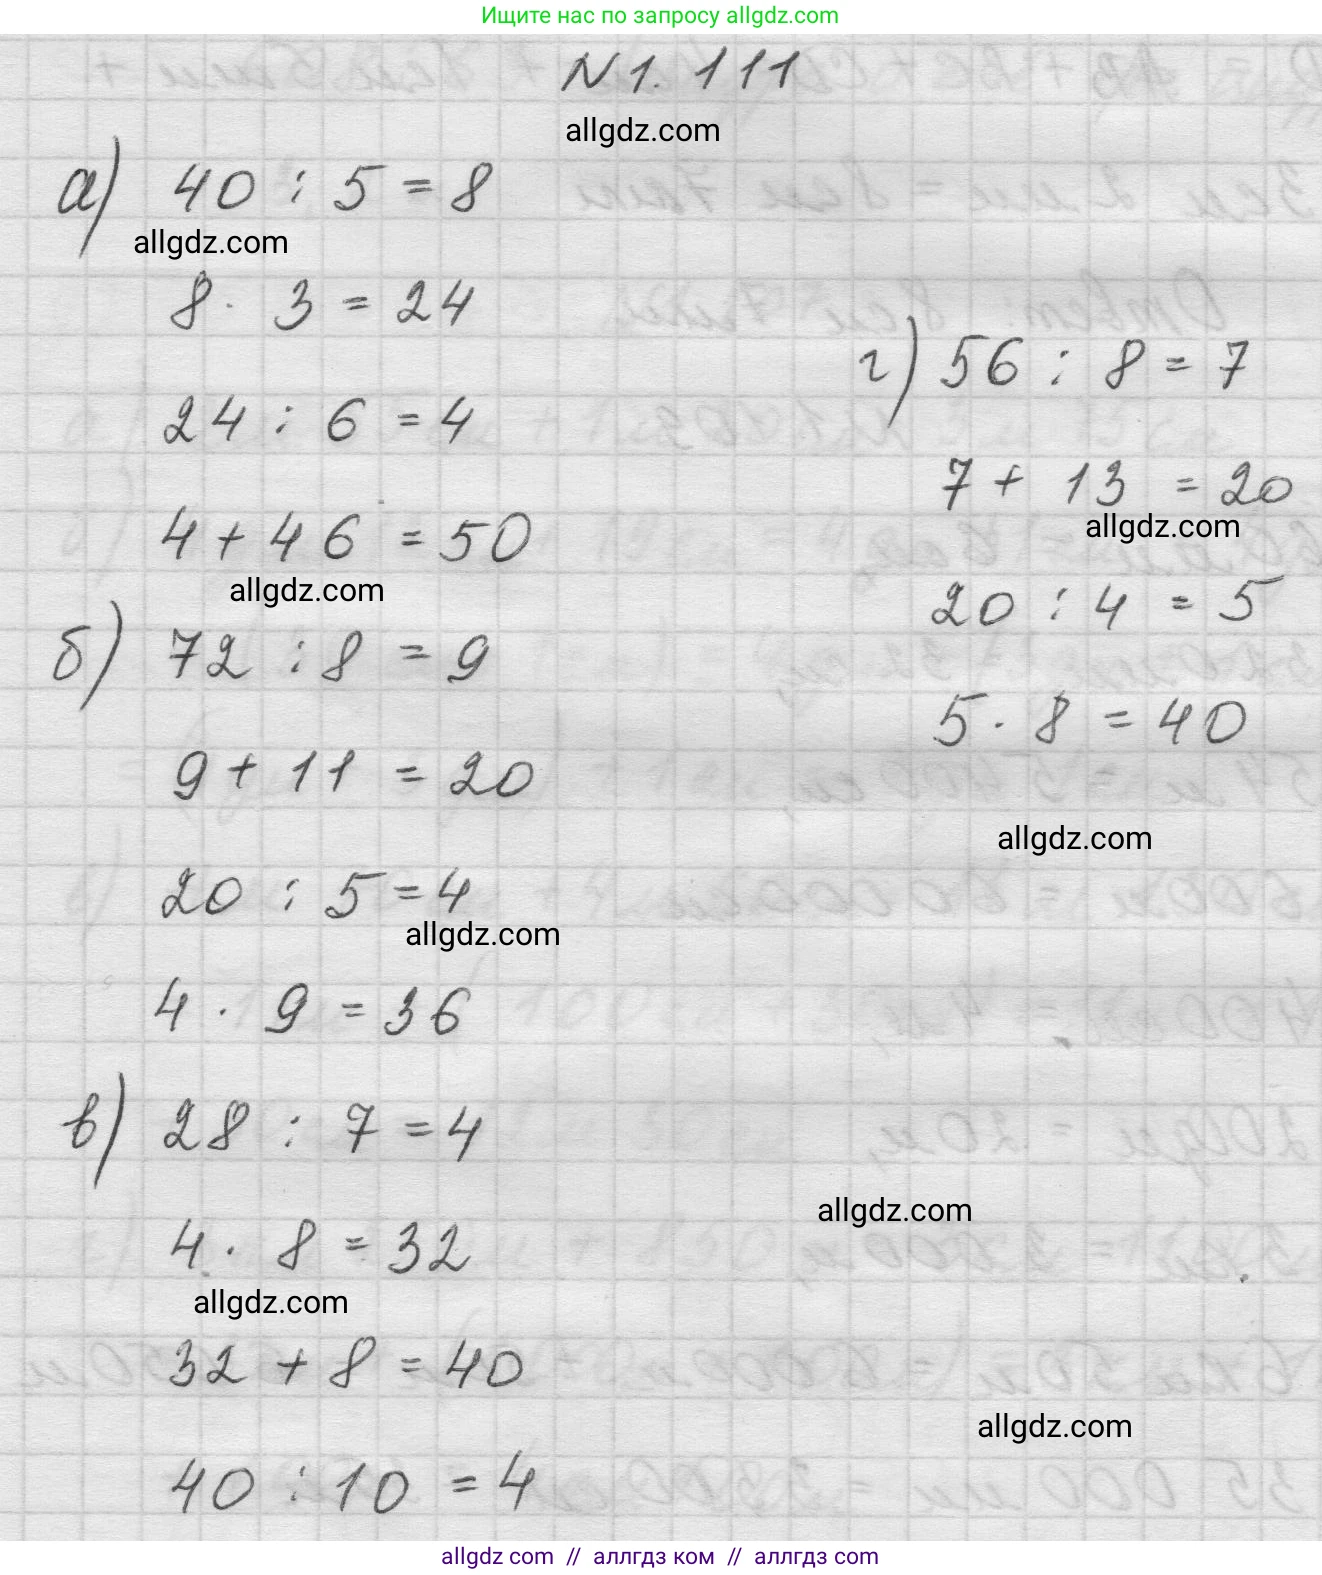 Ищите нас по запросу allgdz.com
N 1. 111
allgdz.com
а) 40 : 5 = 8
allgdz.com
8 · 3 = 24
24 : 6 = 4
4 + 46 = 50
allgdz.com
б) 72 : 8 = 9
9 + 11 = 20
20 : 5 = 4
allgdz.com
4 · 9 = 36
в) 28 : 7 = 4
4 · 8 = 32
allgdz.com
32 + 8 = 40
40 : 10 = 4
г) 56 : 8 = 7
7 + 13 = 20
allgdz.com
20 : 4 = 5
5 · 8 = 40
allgdz.com
allgdz.com
allgdz.com
allgdz com // аллгдз ком // аллгдз com